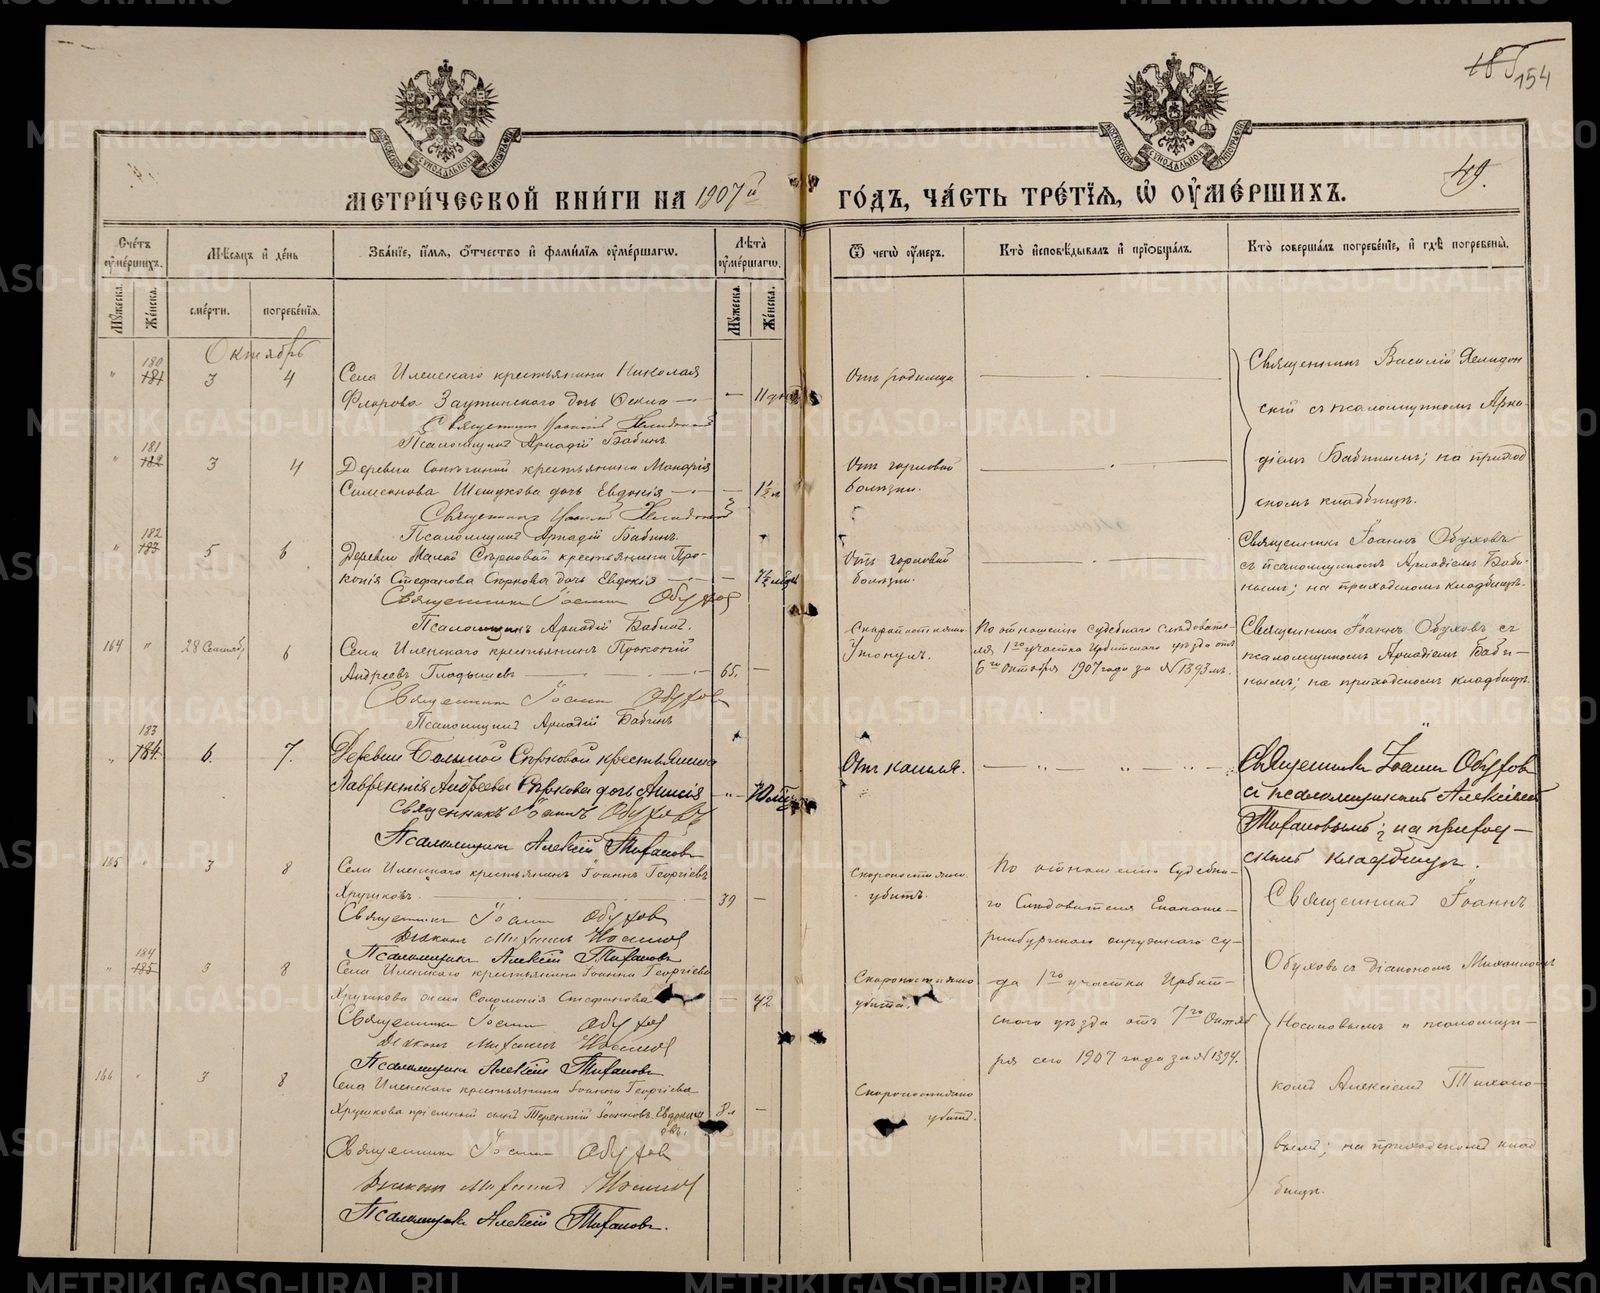 185 154
49.
МЕТРИ́ЧЕСКОЙ КНИ́ГИ НА 1907й ГО́ДЪ, ЧА́СТЬ ТРЕ́ТІЯ, Ѡ ОУМЕ́РШИХЪ.
Сче́тъ оумершихъ.
Мѣсяцъ и день
Зва́ніе, и́мя, ѻтчество и фами́лія оуме́ршагѡ.
Лѣта оуме́ршагѡ.
Ѿ чегѡ оумеръ.
Кто̀ исповѣдывалъ и пріобща́лъ.
Кто̀ соверша́лъ погребе́ніе, и гдѣ погребены̀.
Мужеска.
Женска.
сме́рти.
погребе́нія.
Мужеска.
Женска.
Октябрь
" 180 181 3 4
Села Иленскаго крестьянина Николая
Флорова дочь — 11
Псаломщикъ Аркадій Бабинъ
Отъ родимца
Священникъ Василій
скій съ псаломщикомъ Арка-
діемъ Бабинымъ; на приход
скомъ кладбищѣ.
" 181 182 3 4
Деревни крестьянина
Симеонова Шешукова дочь Евдокія — 1½
Псаломщикъ Аркадій Бабинъ
Отъ горловой
болѣзни.
" 182 183 5 6
Деревни Малой Сѣрковой крестьянина Про-
копія Стефанова Сѣркова дочь Евдокія —
Священникъ Іоаннъ Обуховъ
Псаломщикъ Аркадій Бабинъ.
Отъ горловой
болѣзни.
Священникъ Іоаннъ Обуховъ
съ псаломщикомъ Аркадіемъ Баби-
нымъ; на приходскомъ кладбищѣ.
164 " 28 Сентябр. 6
Села Иленскаго крестьянинъ Прокопій
Андреевъ Гладышевъ — 65. —
Священникъ Іоаннъ Обуховъ
Псаломщикъ Аркадій Бабинъ
Скоропостижно
Утонулъ.
По отношенію судебнаго слѣдовате-
ля 1го участка Ирбитскаго уѣзда отъ
6го октября 1907 года за № 1393мъ.
Священникъ Іоаннъ Обуховъ съ
псаломщикомъ Аркадіемъ Баби-
нымъ; на приходскомъ кладбищѣ.
" 183 184. 6. 7.
Деревни Большой Сѣрковой крестьянина
Лаврентія Андреева Сѣркова дочь Анисія
Священникъ Іоаннъ Обуховъ
Псаломщикъ Алексій Тихановъ
Отъ кашля.
Священникъ Іоаннъ Обуховъ
съ псаломщикомъ Алексіемъ
Тихановымъ; на приход-
скомъ кладбищѣ.
165 " 3 8
Села Иленскаго крестьянинъ Іоаннъ Георгіевъ
Хрушковъ. — 39 —
Священникъ Іоаннъ Обуховъ
Діаконъ Михаилъ Носиловъ
Псаломщикъ Алексій Тихановъ
Скоропостижно
убитъ.
По отношенію Судебна-
го Слѣдователя Екатере-
ринбургскаго окружнаго су-
да 1го участка Ирбит-
скаго уѣзда отъ 7го Октяб
ря сего 1907 года за № 1394.
Священникъ Іоаннъ
Обуховъ съ діакономъ Михаиломъ
Носиловымъ и псаломщи-
комъ Алексіемъ Тихано-
вымъ; на приходскомъ клад
бищѣ.
" 184 185 3 8
Села Иленскаго крестьянина Іоанна Георгіева
Хрушкова жена Соломонія Стефанова — 42
Священникъ Іоаннъ Обуховъ
Діаконъ Михаилъ Носиловъ
Псаломщикъ Алексій Тихановъ
Скоропостижно
убита.
166 " 3 8
Села Иленскаго крестьянина Іоанна Георгіева
Хрушкова пріемный сынъ Терентій Іоанновъ 8л —
Священникъ Іоаннъ Обуховъ
Діаконъ Михаилъ Носиловъ
Псаломщикъ Алексій Тихановъ.
Скоропостижно
убитъ.
METRIKI.GASO-URAL.RU